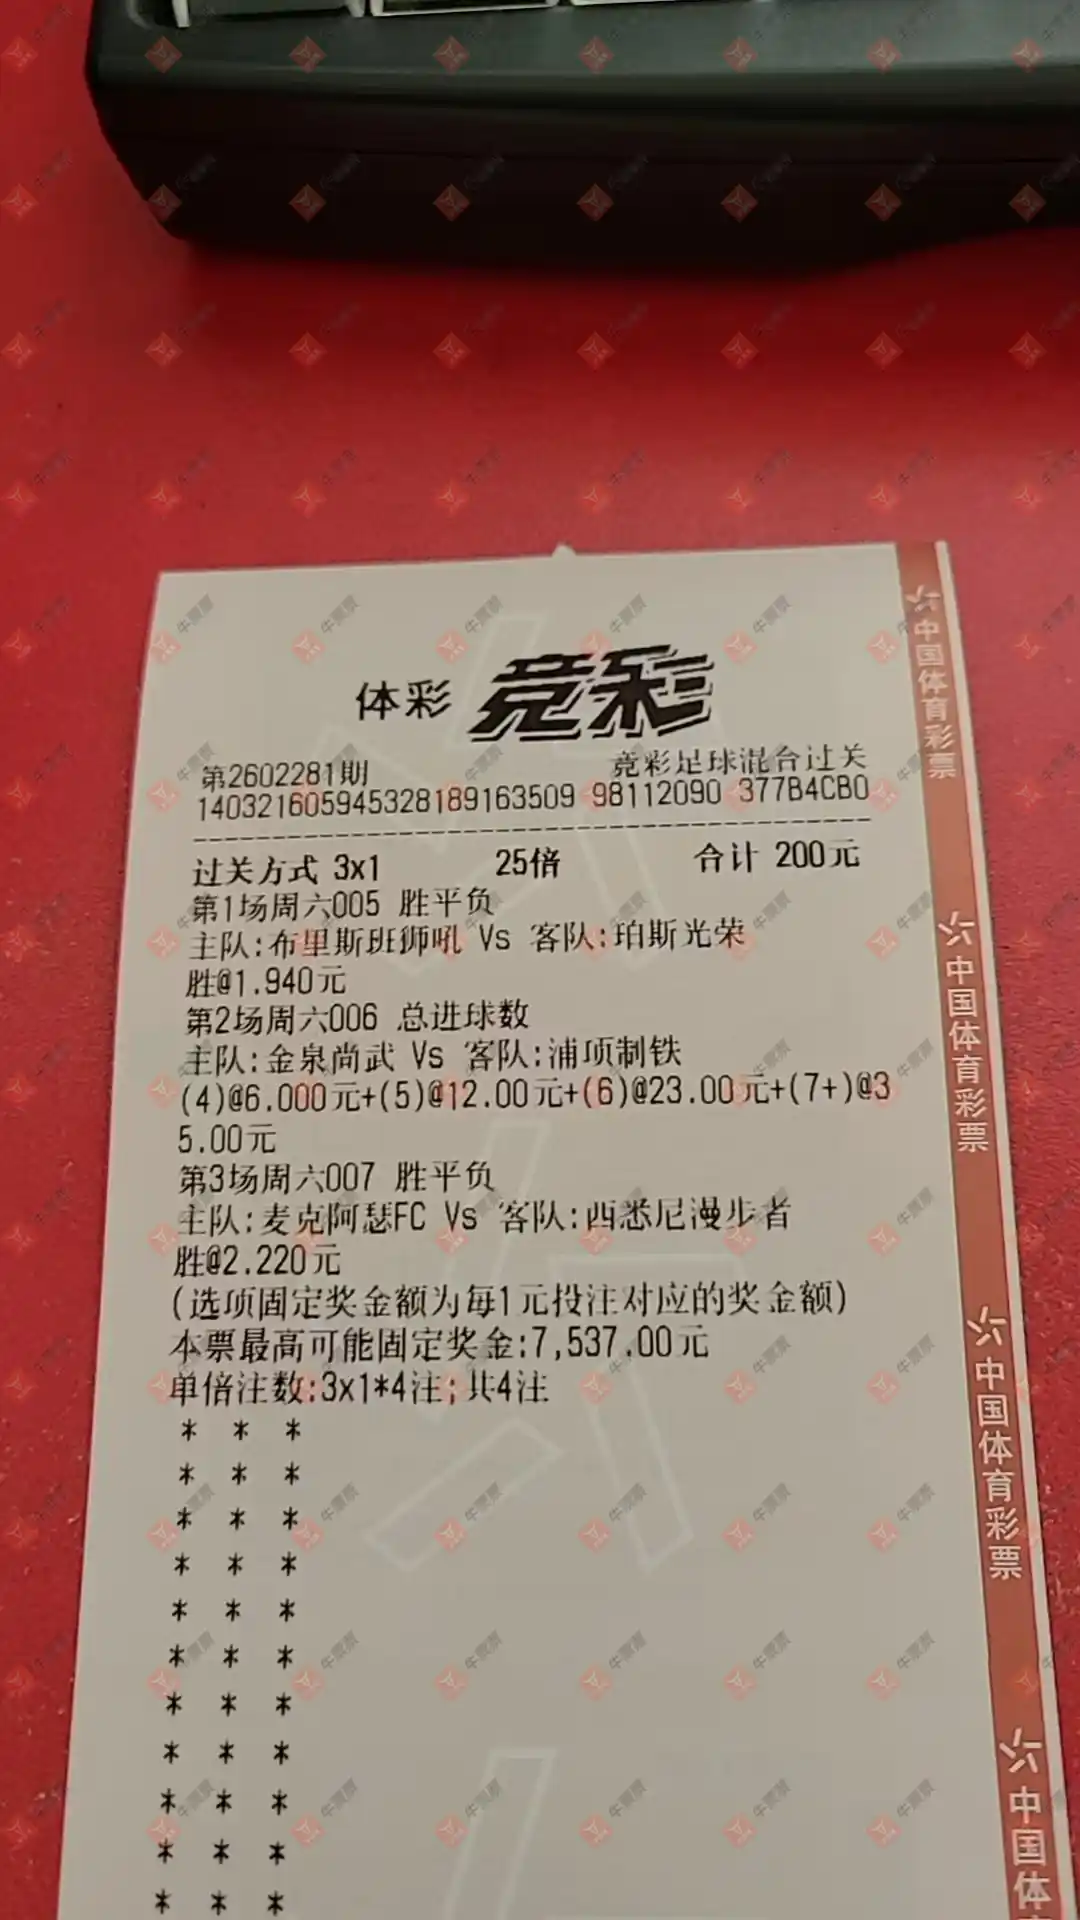 体彩 竞彩
第2602281期 竞彩足球混合过关
140321605945328189163509 98112090 377B4CB0
过关方式 3x1 25倍 合计 200元
第1场周六005 胜平负
主队:布里斯班狮吼 Vs 客队:珀斯光荣
胜@1.940元
第2场周六006 总进球数
主队:金泉尚武 Vs 客队:浦项制铁
(4)@6.000元+(5)@12.00元+(6)@23.00元+(7+)@3
5.00元
第3场周六007 胜平负
主队:麦克阿瑟FC Vs 客队:西悉尼漫步者
胜@2.220元
(选项固定奖金额为每1元投注对应的奖金额)
本票最高可能固定奖金:7,537.00元
单倍注数:3x1*4注;共4注
* * *
* * *
* * *
* * *
* * *
* * *
* * *
* * *
* * *
* * *
* * *
中国体育彩票
中国体育彩票
中国体育彩票
中国体